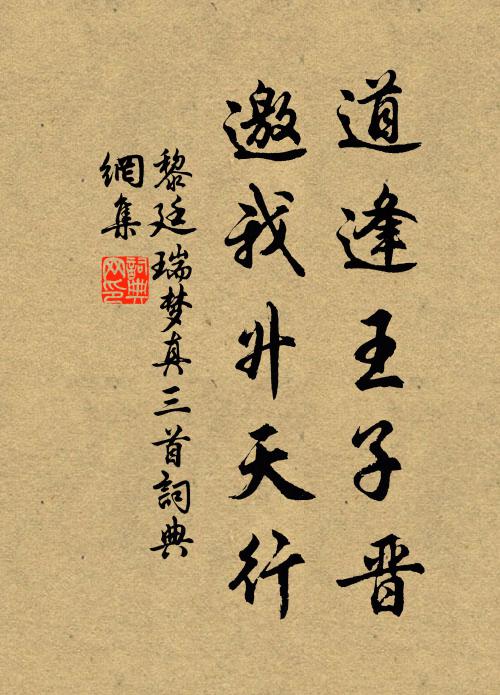 道逢王子晋
邀我升天行
黎廷瑞梦真三首詞典
網集
詞典
网印